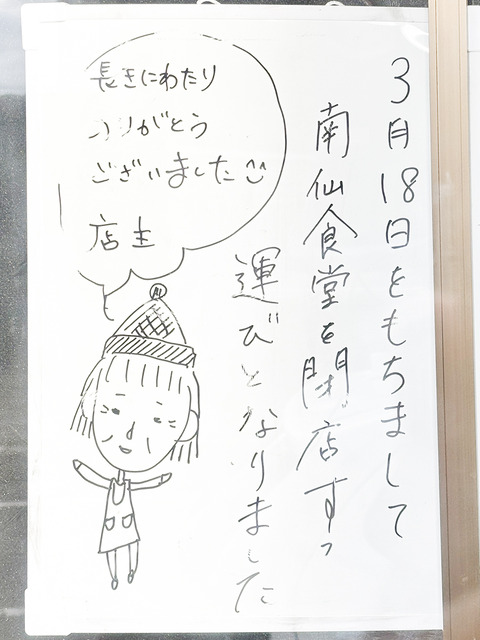 3月18日をもちまして
南仙食堂を閉店する
運びとなりました
長きにわたり
ありがとう
ございました
店主